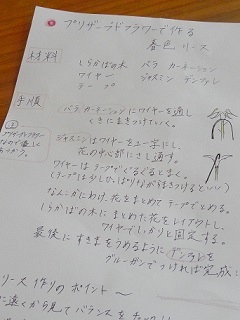 プリザーブドフラワーで作る
春色リース
材料
しらかばの木 バラ カーネーション
ワイヤー ジャスミン デンファレ
テープ
手順
バラ・カーネーションにワイヤーを通し
くきにまきつけていく。
プリザーブドフラワー
なので優しく
あつかう。
ジャスミンはワイヤーをユー字にし、
花の中心部にさし通す。
ワイヤーはテープでぐるぐるとまく。
(テープは少しひっぱりながらまきつけるといい)
なん個かにわけ、花をまとめてテープでとめる。
しらかばの木にまとめた花をレイアウトし、
ワイヤーでしっかりと固定する。
最後にすきまをうめるようにデンファレを
グルーガンでつければ完成!
リース作りのポイント〜
に遠くから見てバランスを